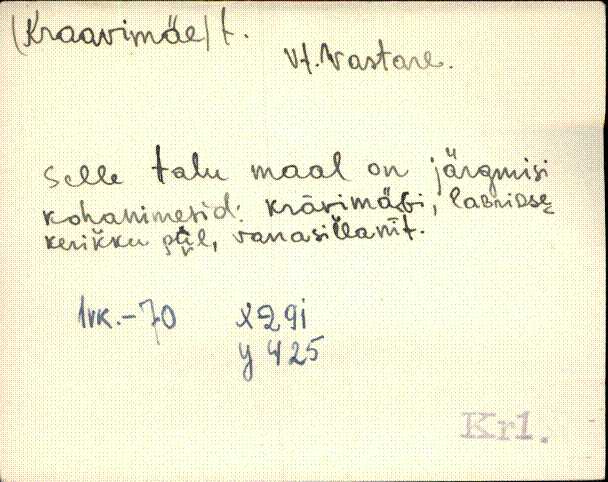 (Kraavimäe) t.
Vt. Vastare.
Selle talu maal on järgmisi
kohanimesid: krāvimäGi,
kerikku päl, vanasillanīt.
1vk.-70 x291
y425
Krl.